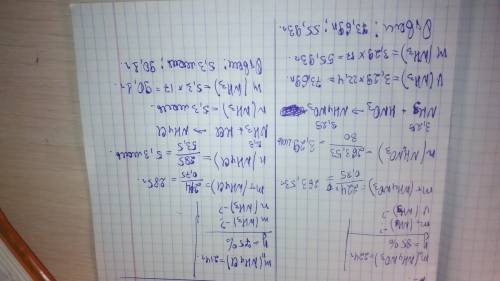 m(NH₄NO₃)=224г
η=85%
m(NH₃)-?
V(NH₃)-?
mт(NH₄NO₃)=224/0,85=263,53г
n(NH₄NO₃)=263,53/80=3,29моль
3,29 3,29
NH₃ + HNO₃ → NH₄NO₃
V(NH₃)=3,29×22,4=73,69л
m(NH₃)=3,29×17=55,93г
Ответ: 73,69л; 55,93г.
m(NH₄Cl)=214г
η=75%
m(NH₃)-?
n(NH₃)-?
mт(NH₄Cl)=214/0,75=285г
n(NH₄Cl)=285/53,5=5,3моль
5,3
NH₃+HCl → NH₄Cl
n(NH₃)=5,3моль
m(NH₃)=5,3×17=90,1г
Ответ: 5,3моль; 90,1г